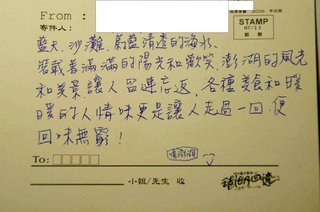 From :
寄件人：
STAMP
NT/2.5
郵票
藍天、沙灘、蔚藍清透的海水,
裝載着滿滿的陽光和歡笑,澎湖的風光
和美景讓人留連忘返,各種美食和暖
暖的人情味更是讓人走過一回,便
回味無窮!
To:
情澎湖
小姐/先生 收